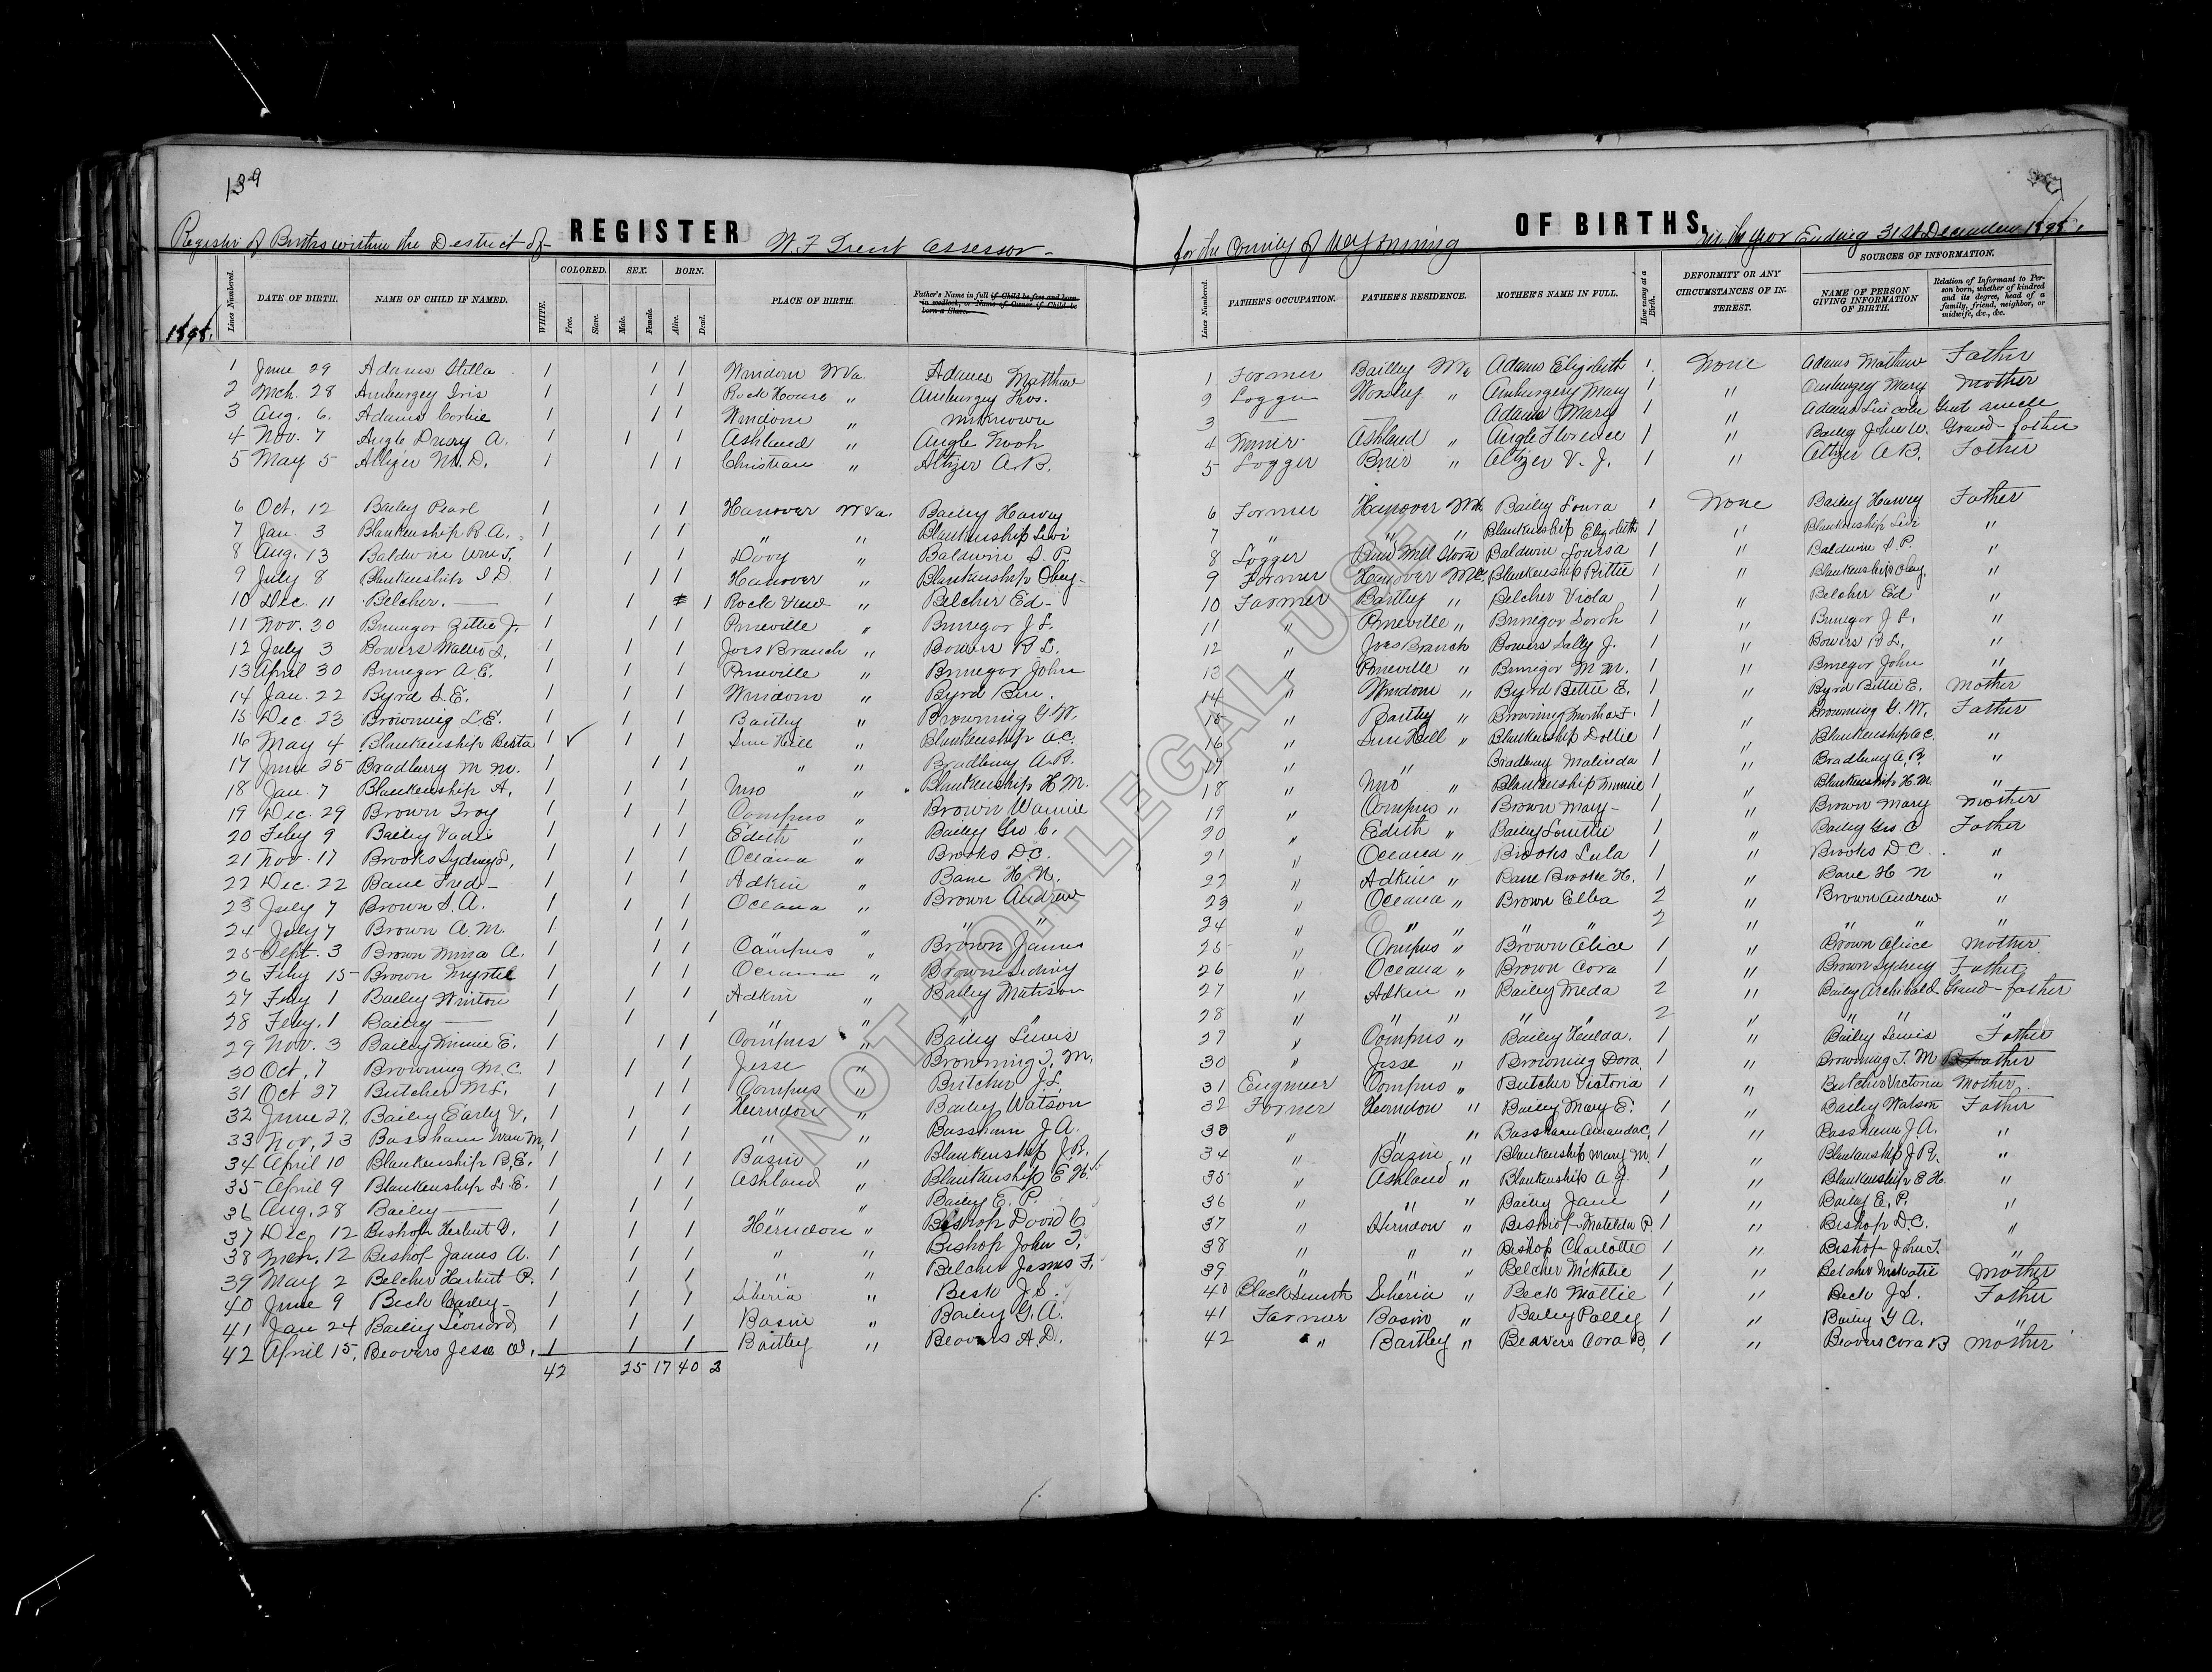 139
REGISTER OF BIRTHS,
Register of Births within the District of W. F. Trent Assessor - for the County of Wyoming in the year Ending 31st December
Lines Numbered. DATE OF BIRTH. NAME OF CHILD IF NAMED. WHITE. COLORED. Free. Slave. SEX. Male. Female. BORN. Alive. Dead. PLACE OF BIRTH. Father's Name in full if Child be free and born in wedlock, or Name of Owner if Child be born a Slave.
Lines Numbered. FATHER'S OCCUPATION. FATHER'S RESIDENCE. MOTHER'S NAME IN FULL. How many at a Birth. DEFORMITY OR ANY CIRCUMSTANCES OF INTEREST. SOURCES OF INFORMATION. NAME OF PERSON GIVING INFORMATION OF BIRTH. Relation of Informant to Person born, whether of kindred and its degree, head of a family, friend, neighbor, or midwife, &c., &c.
1 June 29 Adams Stella 1 1 1 Windom W Va. Adams Matthew
2 Mch. 28 Amburgey Iris 1 1 1 Rock House " Amburgey Thos.
3 Aug. 6. Adams 1 1 1 Windom " unknown
4 Nov. 7 Angle Drury A. 1 1 1 Ashland " Angle Noah
5 May 5 Altizer M. D. 1 1 1 Christian " Altizer A. B.
6 Oct. 12 Bailey Pearl 1 1 1 Hanover W Va. Bailey Harvey
7 Jan. 3 Blankenship R. A. 1 1 1 " " Blankenship Levi
8 Aug. 13 Baldwin Wm T. 1 1 1 Davy " Baldwin S. P.
9 July 8 Blankenship I. D. 1 1 1 Hanover " Blankenship
10 Dec. 11 Belcher. — 1 1 1 Rock View " Belcher Ed -
11 Nov. 30 Brinegar Zettie J. 1 1 1 Pineville " Brinegar J. L.
12 July 3 Bowers Walter L. 1 1 1 Joes Branch " Bowers R. L.
13 April 30 Brinegar A. E. 1 1 1 Pineville " Brinegar John
14 Jan. 22 Byrd S. E. 1 1 1 Windom " Byrd Ben.
15 Dec 23 Browning L. E. 1 1 1 Bartley " Browning G. W.
16 May 4 Blankenship Berta 1 ✓ 1 1 Sun Hill " Blankenship A. C.
17 June 25 Bradberry M. M. 1 1 1 " " Bradbury A. B.
18 Jan. 7 Blankenship A. 1 1 1 " Blankenship H. M.
19 Dec. 29 Brown Troy 1 1 1 Campus " Brown Wannie
20 Feby 9 Bailey Vade 1 1 1 Edith " Bailey Geo C.
21 Nov. 17 Brooks Sydney S. 1 1 1 Oceana " Brooks D. C.
22 Dec. 22 Bane Fred - 1 1 1 Adkin " Bane H. N.
23 July 7 Brown S. A. 1 1 1 Oceana " Brown Andrew
24 July 7 Brown A. M. 1 1 1 " " " "
25 Sept. 3 Brown Mina A. 1 1 1 Campus " Brown James
26 Feby 15 Brown Myrtle 1 1 1 Oceana " Brown Sidney
27 Feby 1 Bailey Winton 1 1 1 Adkin " Bailey Matison
28 Feby. 1 Bailey — 1 1 1 " " " "
29 Nov. 3 Bailey Minnie E. 1 1 1 Campus " Bailey Lewis
30 Oct. 7 Browning M. C. 1 1 1 Jesse " Browning T. M.
31 Oct 27 Butcher M. L. 1 1 1 Campus " Butcher J. L.
32 June 27. Bailey Early V. 1 1 1 Herndon " Bailey Watson
33 Nov. 23 Bassham Ivan M. 1 1 1 " " Bassham J. A.
34 April 10 Blankenship B. E. 1 1 1 Basin " Blankenship J. R.
35 April 9 Blankenship L. E. 1 1 1 Ashland " Blankenship E. H.
36 Aug. 28 Bailey — 1 1 1 " " Bailey E. P.
37 Dec. 12 Bishop Herbert G. 1 1 1 Herndon " Bishop David C.
38 Mch. 12 Bishop James A. 1 1 1 " " Bishop John T.
39 May 2 Belcher Herbert P. 1 1 1 " " Belcher James F.
40 June 9 Beck Carley - 1 1 1 Siberia " Beck J. S.
41 Jan 24 Bailey Leonard 1 1 1 Basin " Bailey G. A.
42 April 15. Beavers Jesse W. 1 1 1 Bartley " Beavers A. D.
42 25 17 40 2
1 Farmer Bailey Adams Elizabeth 1 None Adams Mathew Father
2 Logger Worsley " Amburgery Mary 1 " Amburgey Mary Mother
3 — — Adams Mary 1 " Adams Lincoln Great uncle
4 Miner Ashland " Angle Florence 1 " Bailey John W. Grand-father
5 Logger Brier " Altizer V. J. 1 " Altizer A. B. Father
6 Farmer Hanover Bailey Loura 1 None Bailey Harvey Father
7 " " " Blankenship Elizabeth 1 " Blankenship Levi "
8 Logger Baldwin Lousa 1 " Baldwin S. P. "
9 Farmer Hanover Blankenship Rittie 1 " Blankenship "
10 Farmer Bartley " Belcher Viola 1 " Belcher Ed "
11 " Pineville " Brinegar Sarah 1 " Brinegar J. L. "
12 " Joes Branch Bowers Sally J. 1 " Bowers R. L. "
13 " Pineville " Brinegar M. M. 1 " Brinegar John "
14 " Windom " Byrd Bettie E. 1 " Byrd Bettie E. Mother
15 " Bartley " Browning Martha F. 1 " Browning G. W. Father
16 " Sun Hill " Blankenship Dollie 1 " Blankenship A. C. "
17 " " Bradbury Malinda 1 " Bradbury A. B. "
18 " " Blankenship Minnie 1 " Blankenship H. M. "
19 " Campus " Brown Mary - 1 " Brown Mary Mother
20 " Edith " Bailey Louettie 1 " Bailey Geo C Father
21 " Oceana " Brooks Lula 1 " Brooks D. C. "
22 " Adkin " Bane Brooke H. 1 " Bane H N "
23 " Oceana " Brown Ella 2 " Brown Andrew "
24 " " " " " 2 " " " "
25 " Campus " Brown Alice 1 " Brown Alice Mother
26 " Oceana " Brown Cora 1 " Brown Sydney Father
27 " Adkin " Bailey Meda 2 " Bailey Archibald Grand-father
28 " " " " " 2 " " " "
29 " Campus " Bailey Hulda. 1 " Bailey Lewis Father
30 " Jesse " Browning Dora. 1 " Browning T. M Father
31 Engineer Campus " Butcher Victoria 1 " Butcher Victoria Mother
32 Farmer Herndon " Bailey Mary E. 1 " Bailey Watson Father
33 " " " Bassham Amanda C. 1 " Bassham J. A. "
34 " Basin " Blankenship Mary M. 1 " Blankenship J. R. "
35 " Ashland " Blankenship A. J. 1 " Blankenship E. H. "
36 " " " Bailey Jane 1 " Bailey E. P. "
37 " Herndon " Bishop Matilda P. 1 " Bishop D. C. "
38 " " " Bishop Charlotte 1 " Bishop John T. "
39 " " " Belcher McKatie 1 " Belcher McKatie Mother
40 Blacksmith Siberia " Beck Mollie 1 " Beck J. S. Father
41 Farmer Basin " Bailey Polly 1 " Bailey G A. "
42 " Bartley " Beavers Cora B. 1 " Beavers Cora B Mother
NOT FOR LEGAL USE